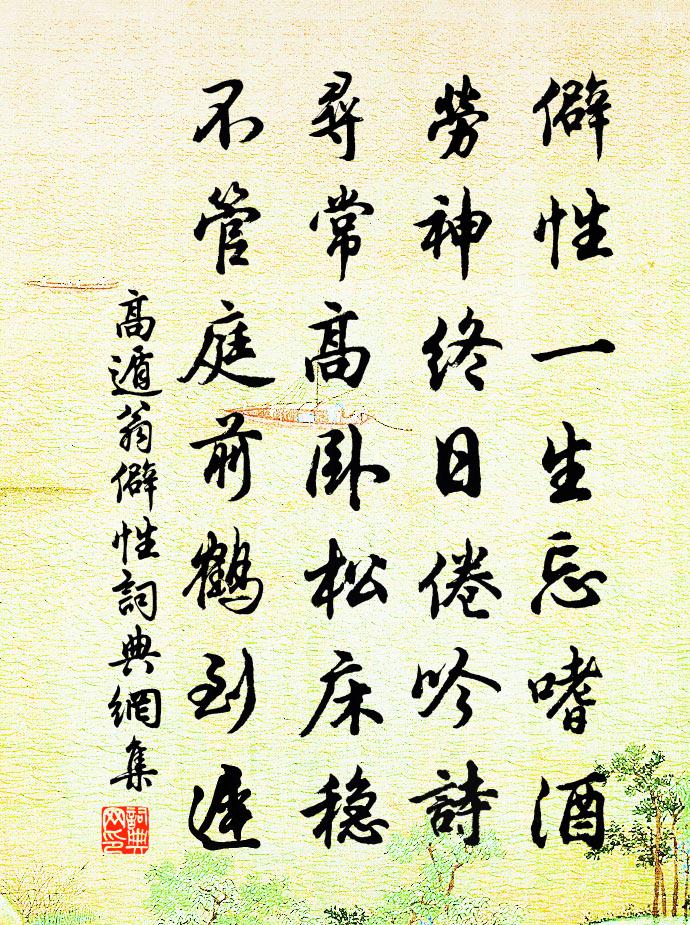 僻性一生忘嗜酒
勞神終日倦吟詩
尋常高卧松床穏
不管庭前鶴到遲
高遁翁僻性詞典網集
詞典
网印